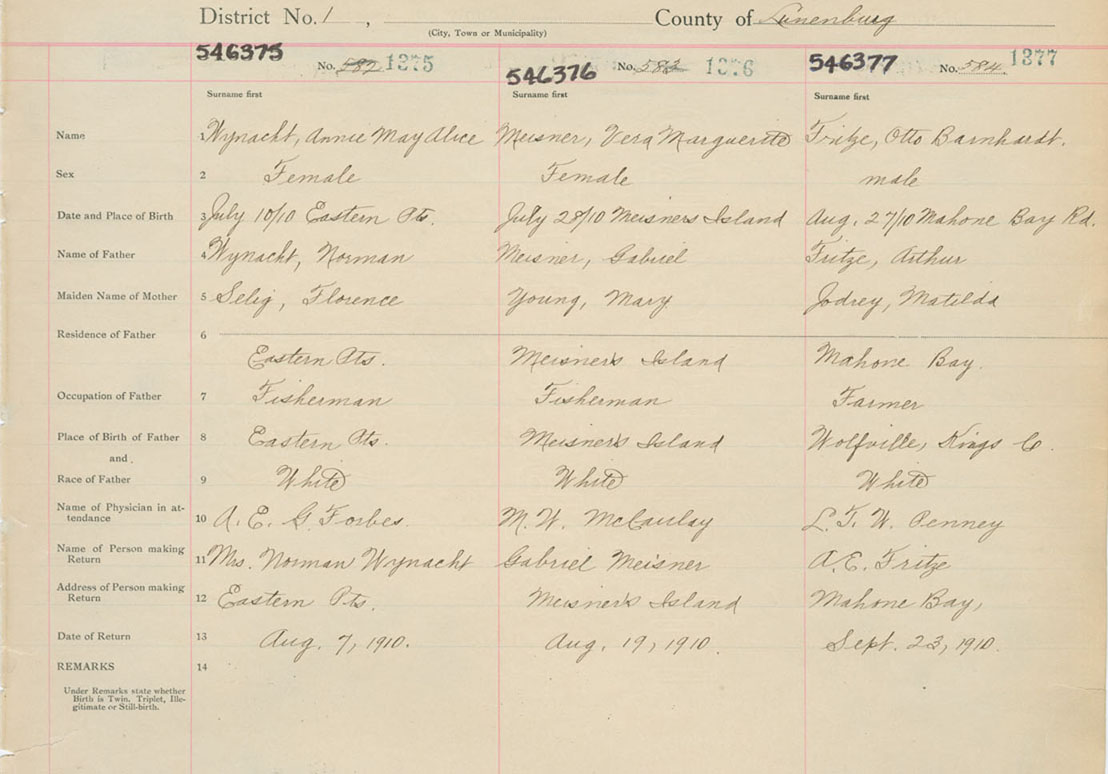 District No. 1 , County of Lunenburg
(City, Town or Municipality)
546375 No. 582 1375 546376 No. 583 1376 546377 No. 584 1377
Surname first Surname first Surname first
Name 1 Wynacht, Annie May Alice Meisner, Vera Marguerite Fritze, Otto Barnhardt.
Sex 2 Female Female male
Date and Place of Birth 3 July 10/10 Eastern Pts. July 28/10 Meisners Island Aug. 27/10 Mahone Bay Rd.
Name of Father 4 Wynacht, Norman Meisner, Gabriel Fritze, Arthur
Maiden Name of Mother 5 Selig, Florence Young, Mary Jodrey, Matilda
Residence of Father 6
Eastern Pts. Meisner's Island Mahone Bay.
Occupation of Father 7 Fisherman Fisherman Farmer
Place of Birth of Father 8 Eastern Pts. Meisner's Island Wolfville, Kings Co.
and
Race of Father 9 White White White
Name of Physician in at-
tendance 10 A. E. G. Forbes. M. W. McCaulay L. T. W. Penney
Name of Person making
Return 11 Mrs. Norman Wynacht Gabriel Meisner A. E. Fritze
Address of Person making
Return 12 Eastern Pts. Meisner's Island Mahone Bay,
Date of Return 13 Aug. 7, 1910. Aug. 19, 1910. Sept. 23, 1910.
REMARKS 14
Under Remarks state whether
Birth is Twin, Triplet, Ille-
gitimate or Still-birth.